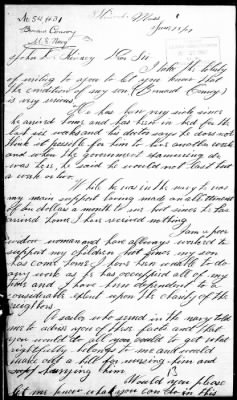 No 54,431
Bernard Conroy
U.S. Navy
Mass
John L. Kinsey
Dear Sir
I take the liberty
of writing to you to let you know that
the condition of my son (Bernard Conroy)
is very serious
He has been very sick since
he arrived home and has been in bed for the
last six weeks and his doctor says he does not
think it possible for him to live another week
and when the government examining dr.
was here, he said he would not last but
a week or two.
While he was in the navy he was
my main support having made an allotment
of ten dollars a month to me but since he has
arrived home I have received nothing.
I am a poor
widow woman and have always worked to
support my children but since my son
has came home, I have been unable to do
any work as he has occupied all of my
time and I have been dependent to a
considerable extent upon the charity of the
neighbors
A sailor who served in the navy told
me to advise you of these facts and that
you would do all you could to get what
rightfully belongs to me and would
make out a bill for nursing him and
for burying him
Would you please
let me know what you can do in this